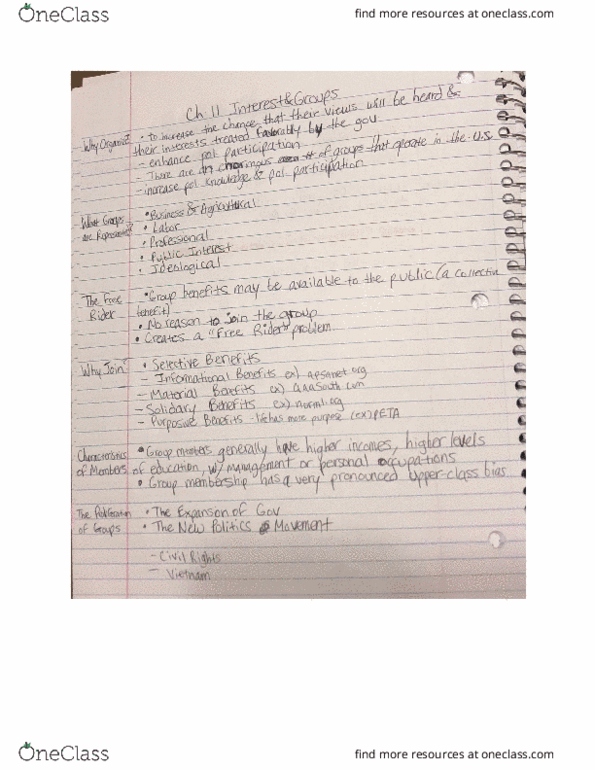 OneClass
find more resources at oneclass.com
Ch 11 Interest & Groups
Why Organize?
• To increase the chance that their views will be heard &
their interests treated favorably by the gov
- enhance pol participation
- There are an enormous # of groups that operate in the U.S
- increase pol knowledge & pol participation
What Groups are Represented?
• Business & Agricultural
• Labor
• Professional
• Public Interest
• Ideological
The Free Rider
• Group benefits may be available to the public (a collective
benefit)
• No reason to join the group
• Creates a "Free Rider" problem
Why Join?
• Selective Benefits
- Informational Benefits ex) apsanet.org
- Material Benefits ex) AAASouth.com
- Solidary Benefits ex) norml.org
- Purposive Benefits - life has more purpose (ex) PETA
Characteristics of Members
• Group members generally have higher incomes, higher levels
of education, w/ management or personal occupations
• Group membership has a very pronounced upper-class bias
The Proliferation of Groups
• The Expansion of Gov
• The New Politics Movement
- Civil Rights
- Vietnam
OneClass
find more resources at oneclass.com